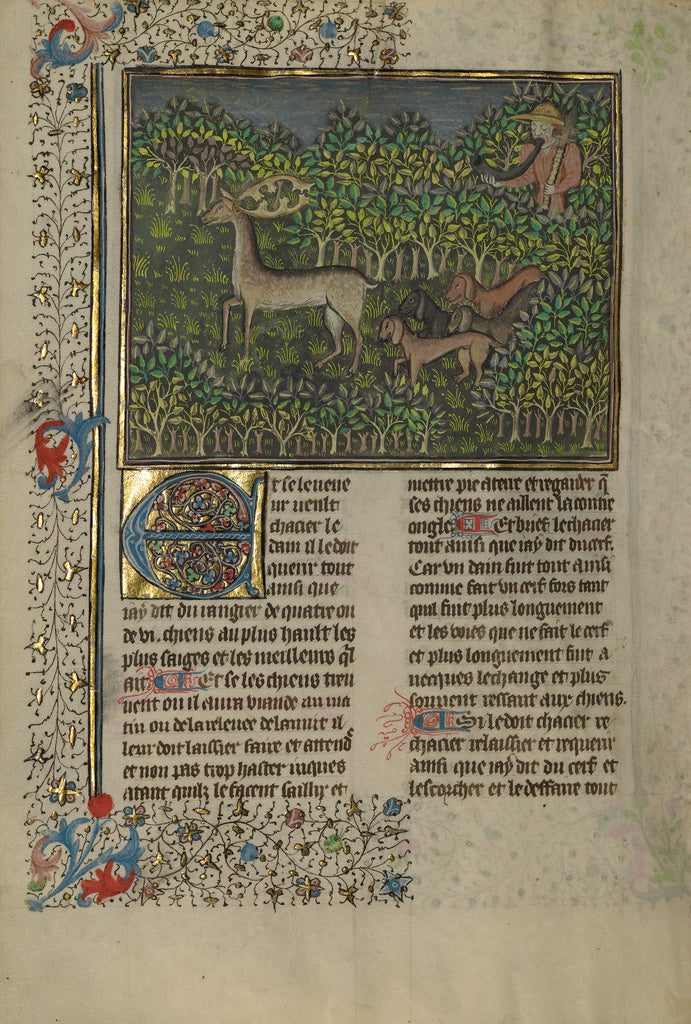 Et se le vene
ur veult
chacier le
dain il le doit
querir tout
ainsi que
iay dit du rangier de quatre ou
de vi. chiens au plus hault les
plus saiges et les meilleurs ql
ait Et se les chiens treu
uent ou il aura viande au ma
tin ou de la releuee de la nuit il
leur doit laissier faire et attend
et non pas trop haster iusques
atant quilz le facent saillir et
mettre pie a terre et regarder q
ses chiens ne aillent la contre
ongle Et brief le chacier
tout ainsi que iay dit du cerf.
Car vn dain fuit tout ainsi
comme fait vn cerf fors tant
quil fuit plus longuement
et les voies que ne fait le cerf
et plus longuement fuit a
uecques le change et plus
souuent ressaut aux chiens.
Si le doit chacier re
chacier relaissier et requerir
ainsi que iay dit du cerf et
lescorcher et le deffaire tout